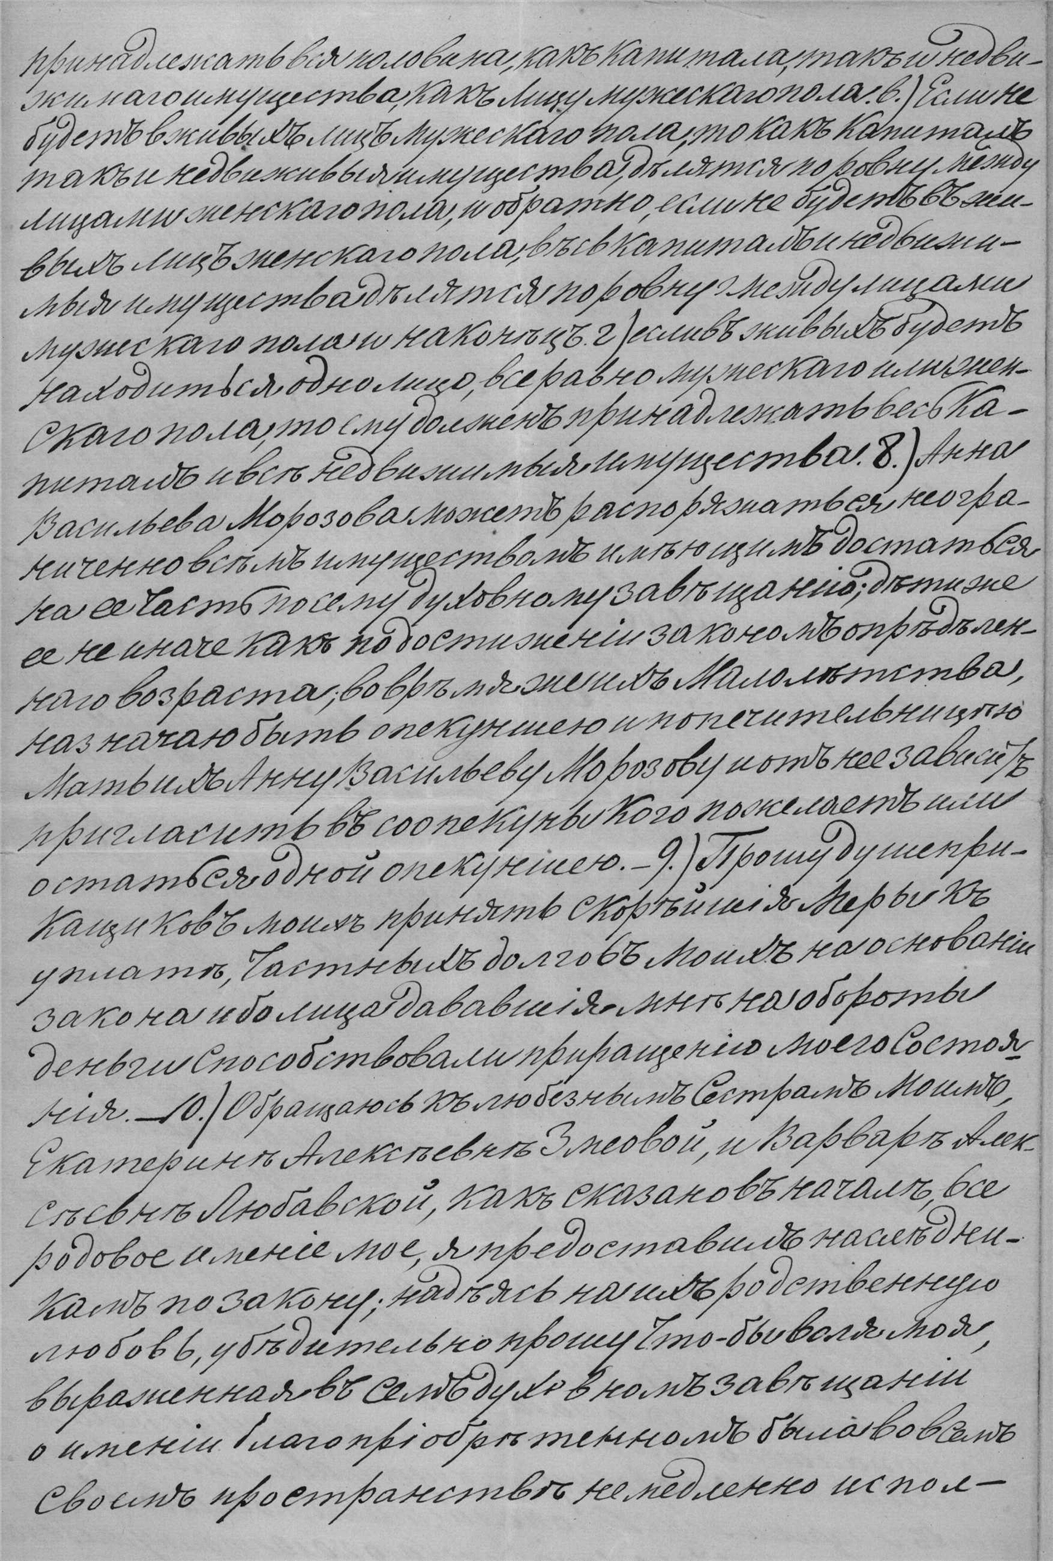 принадлежать вся половина, какъ капитала, такъ и недви-
жимаго имущества, какъ лицу мужескаго пола. в.) Если не
будетъ в живыхъ лицъ мужескаго пола, то какъ капиталъ
такъ и недвиживыя имущества, дѣлятся поровну между
лицами женскаго пола, и обратно, если не будетъ въ жи-
выхъ лицъ женскаго пола, вѣсь капиталъ и недвижи-
мыя имущества дѣлятся поровну между лицами
мужескаго пола и наконѣцъ. г) если въ живыхъ будетъ
находиться одно лицо, все равно мужескаго или жен-
скаго пола, то ему долженъ принадлежать весь ка-
питалъ и всѣ недвижимыя имущества. 8.) Анна
Васильева Морозова можетъ распоряжаться неогра-
ниченно всѣмъ имуществомъ имѣющимъ достаться
на ее часть по сему духовному завѣщанію; дѣти же
ее не иначе какъ по достиженіи закономъ опрѣдѣлен-
наго возраста; во врѣмя же ихъ малолѣтства,
назначаю быть опекуншею и попечительницѣю
Мать ихъ Анну Васильеву Морозову и отъ нее зависитъ
пригласить въ соопекуны кого пожелаетъ или
остаться одной опекуншею. – 9.) Прошу душепри-
кащиковъ моихъ принять скорѣйшія меры къ
уплатѣ, частныхъ долговъ моихъ на основаніи
закона ибо лица дававшія мнѣ на обороты
деньги способствовали приращенію моего состоя-
нія. – 10.) Обращаюсь къ любезнымъ Сестрамъ Моимъ,
Екатеринѣ Алексѣевнѣ Змеовой, и Варварѣ Алек-
сѣевнѣ Любавской, какъ сказано въ началѣ, все
родовое именіе мое, я предоставилъ наслѣдни-
камъ по закону; надѣясь на ихъ родственную
любовь, убѣдительно прошу что-бы воля моя,
выраженная въ семъ духовномъ завѣщаніи
о именіи благопріобрѣтенномъ была во всемъ
своемъ пространствѣ немедленно испол-